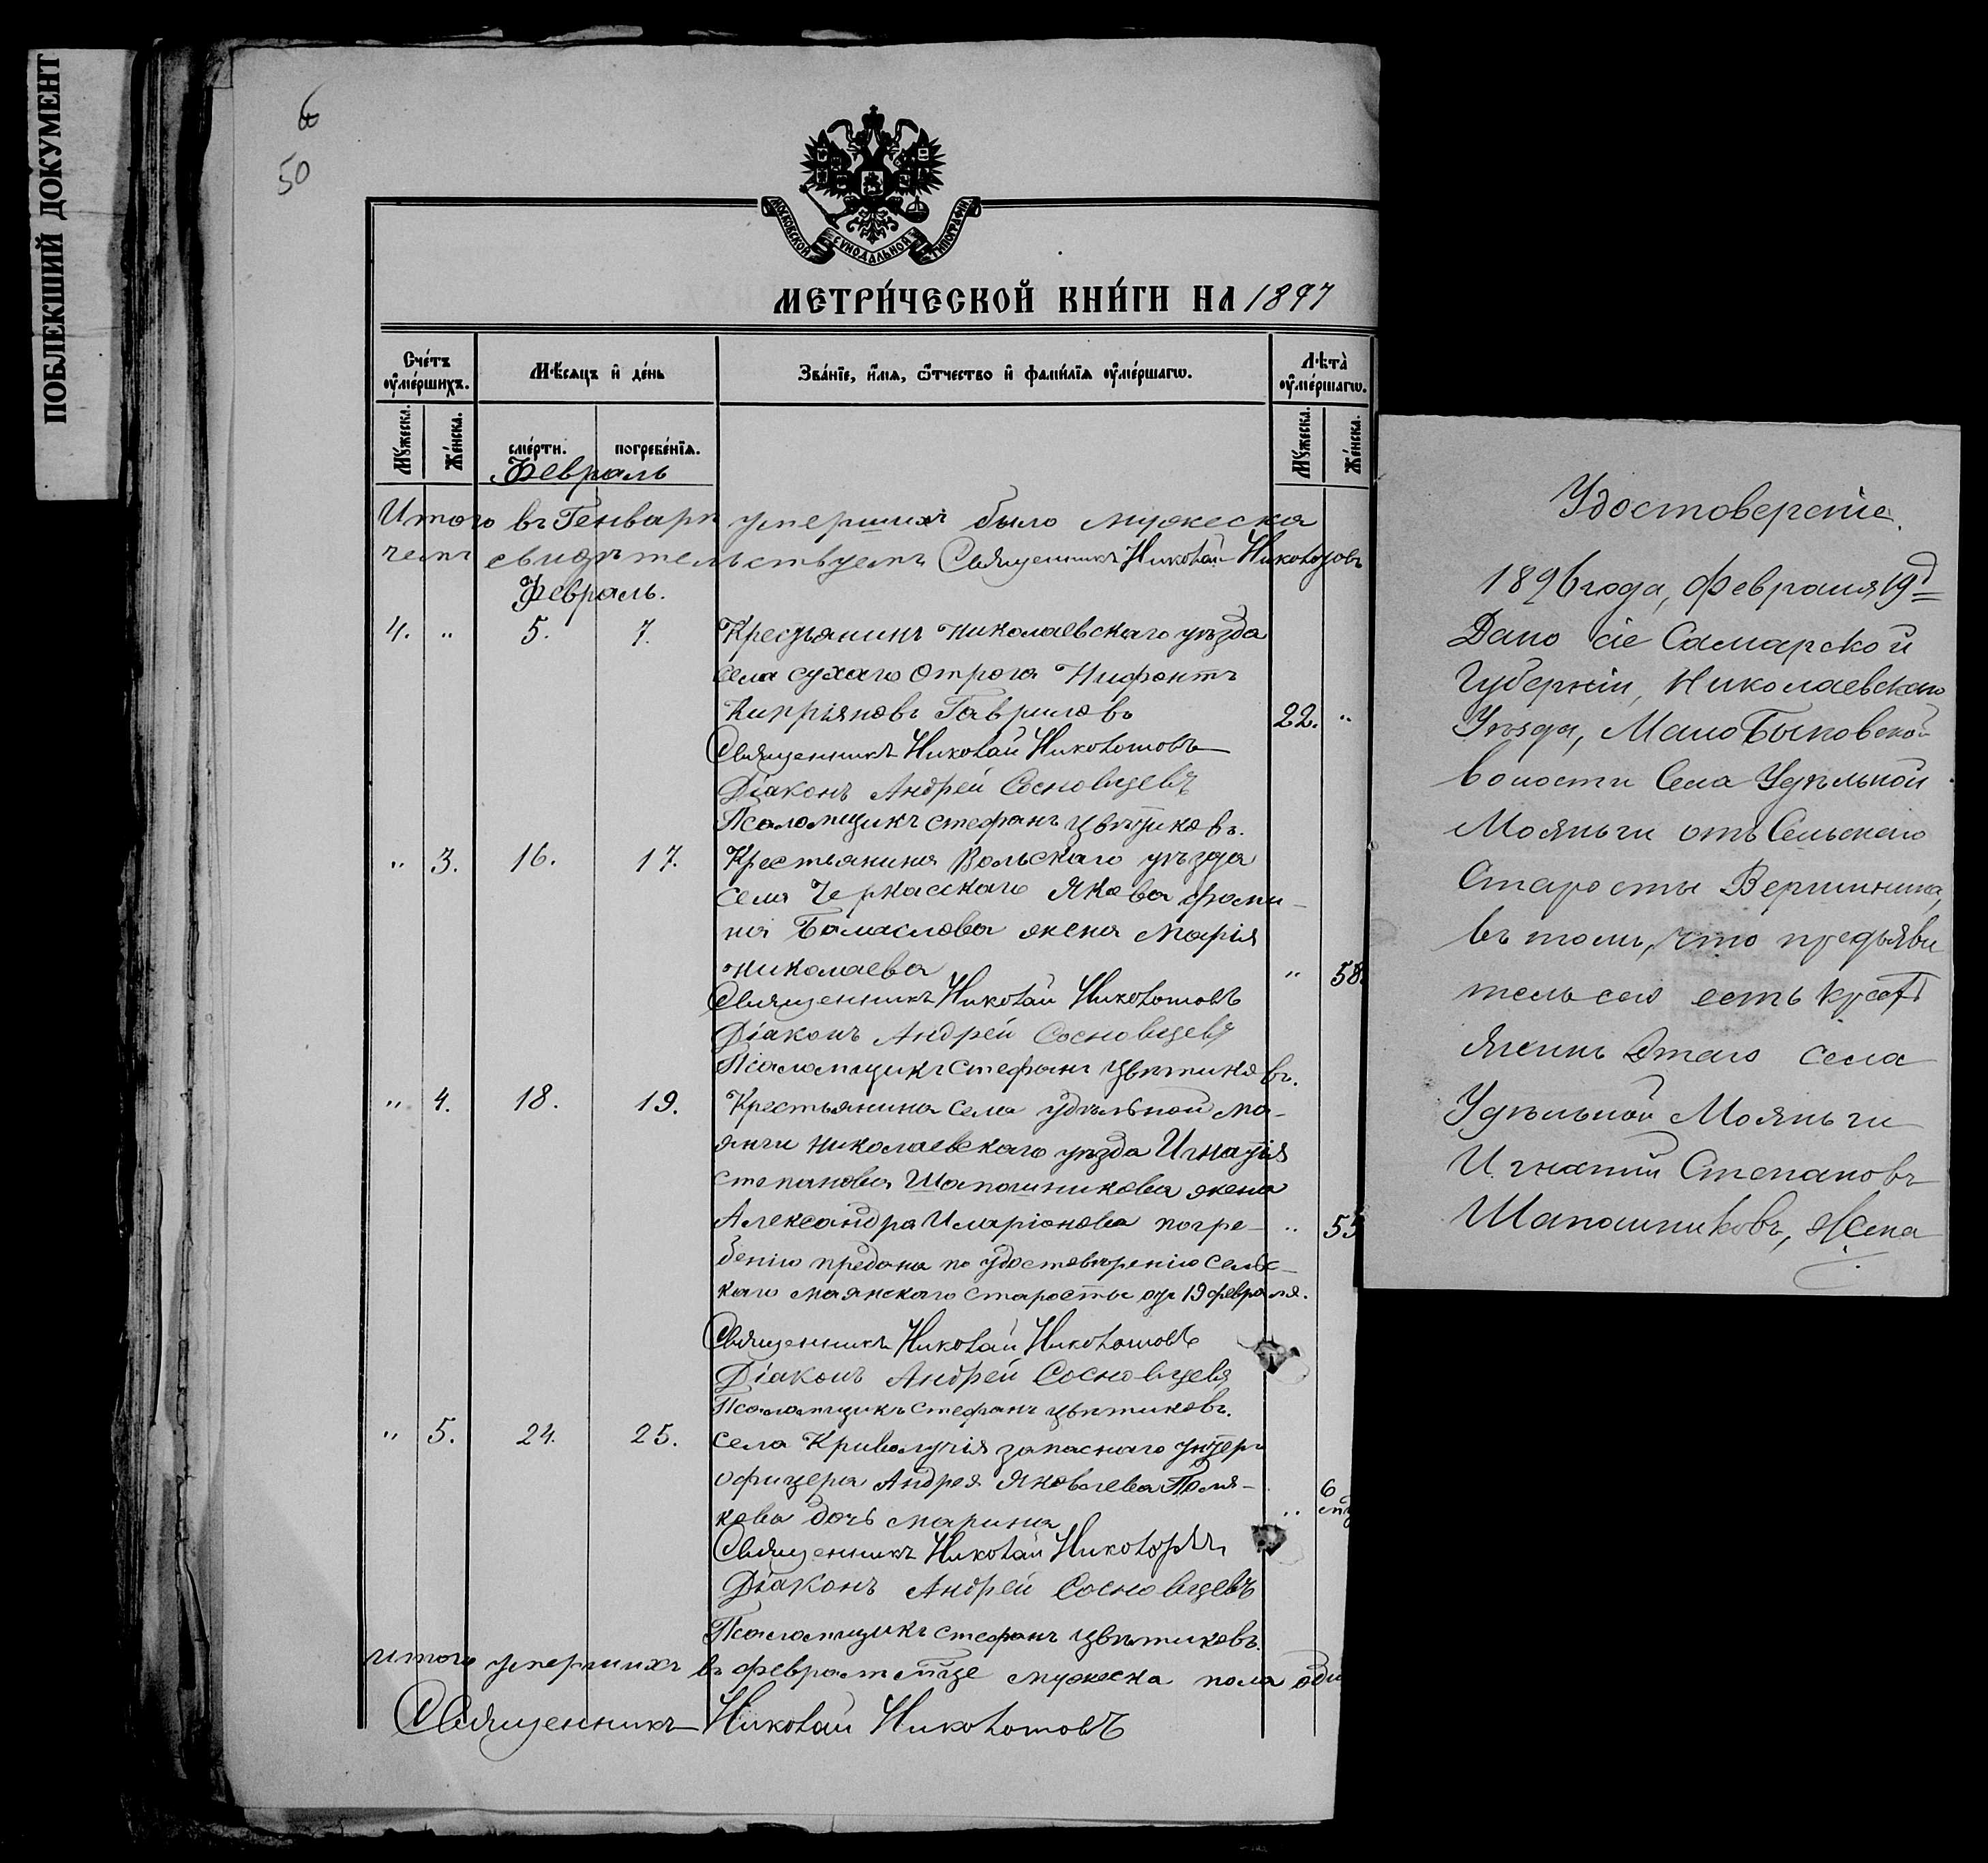 ПОБЛЕКШИЙ ДОКУМЕНТ
6
50
МОСКОВСКОЙ СѴНОДАЛЬНОЙ ТИПОГРАФІИ
МЕТРИ́ЧЕСКОЙ КНИ́ГИ НА 1897
Сче́тъ ᲂу҆ме́ршихъ.
Мѣ́сяцъ и҆ де́нь
Зва́нїе, и҆́мя, ѻ҆́тчество и҆ фами́лїя ᲂу҆ме́ршагѡ.
Лѣта̀ ᲂу҆ме́ршагѡ.
Мꙋ́жеска.
Же́нска.
сме́рти.
погребе́нїя.
Мꙋ́жеска.
Же́нска.
Февраль
Итого въ Генварѣ умершихъ было мужеска
чемъ свидѣтельствуемъ Священникъ Николай Николотовъ
Февраль.
4. " 5. 7. Крестьянинъ Николаевскаго уѣзда
села сухаго Отрога Нифонтъ
Кипріяновъ Гавриловъ 22. "
Священникъ Николай Николотовъ
Діаконъ Андрей Сосновцевъ
Псаломщикъ стефанъ Цвѣтиковъ.
" 3. 16. 17. Крестьянина Вольскаго уѣзда
села Черкасскаго Якова фоми-
на Бамаслова жена Марія
Николаева " 58.
Священникъ Николай Николотовъ
Діаконъ Андрей Сосновцевъ
Псаломщикъ стефанъ Цвѣтиковъ.
" 4. 18. 19. Крестьянина села удѣльной Ма-
янги Николаевскаго уѣзда Игнатія
степанова Шапошникова жена
Александра Иларіонова погре- " 55
бенію предана по удостовѣренію Сельс-
каго маянскаго старосты отъ 19 февраля.
Священникъ Николай Николотовъ
Діаконъ Андрей Сосновцевъ
Псаломщикъ стефанъ цвѣтиковъ.
" 5. 24. 25. села Криволучія запаснаго унтеръ
офицера Андрея Яковлева Поля- 6
кова дочь марина " мц
Священникъ Николай Николотовъ
Діаконъ Андрей Сосновцевъ
Псаломщикъ стефанъ Цвѣтиковъ.
итого умершихъ въ феврал мце мужеска пола оди
Священникъ Николай Николотовъ
Удостоверенiе.
1896 года, Февраля 19д
Дано сіе Самарской
Губерніи, Николаевскаго
Уѣзда, МалоБыковской
волости Села Удѣльной
Мояньги отъ Сельскаго
Старосты Вершинина,
въ томъ, что предъяви
тель сего есть крест
янинъ Этаго села
Удѣльной Мояньги
Игнатий Степановъ
Шапошниковъ, Жена